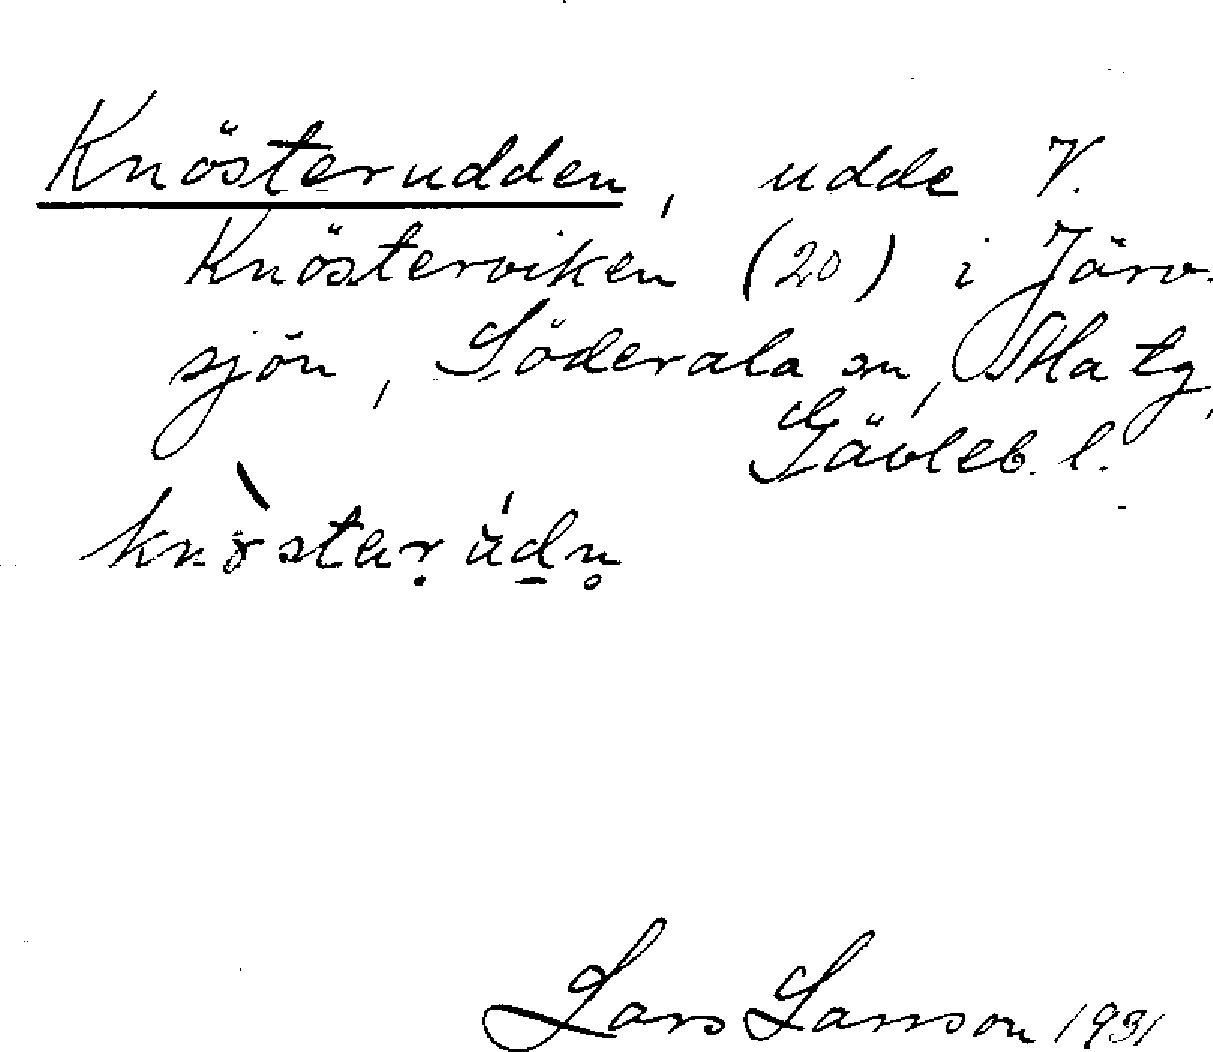 Knösterudden, udde V.
Knösterviken (20) i Järv-
sjön, Söderala sn, Ala tg,
Gävleb. l.
Lars Larsson 1931